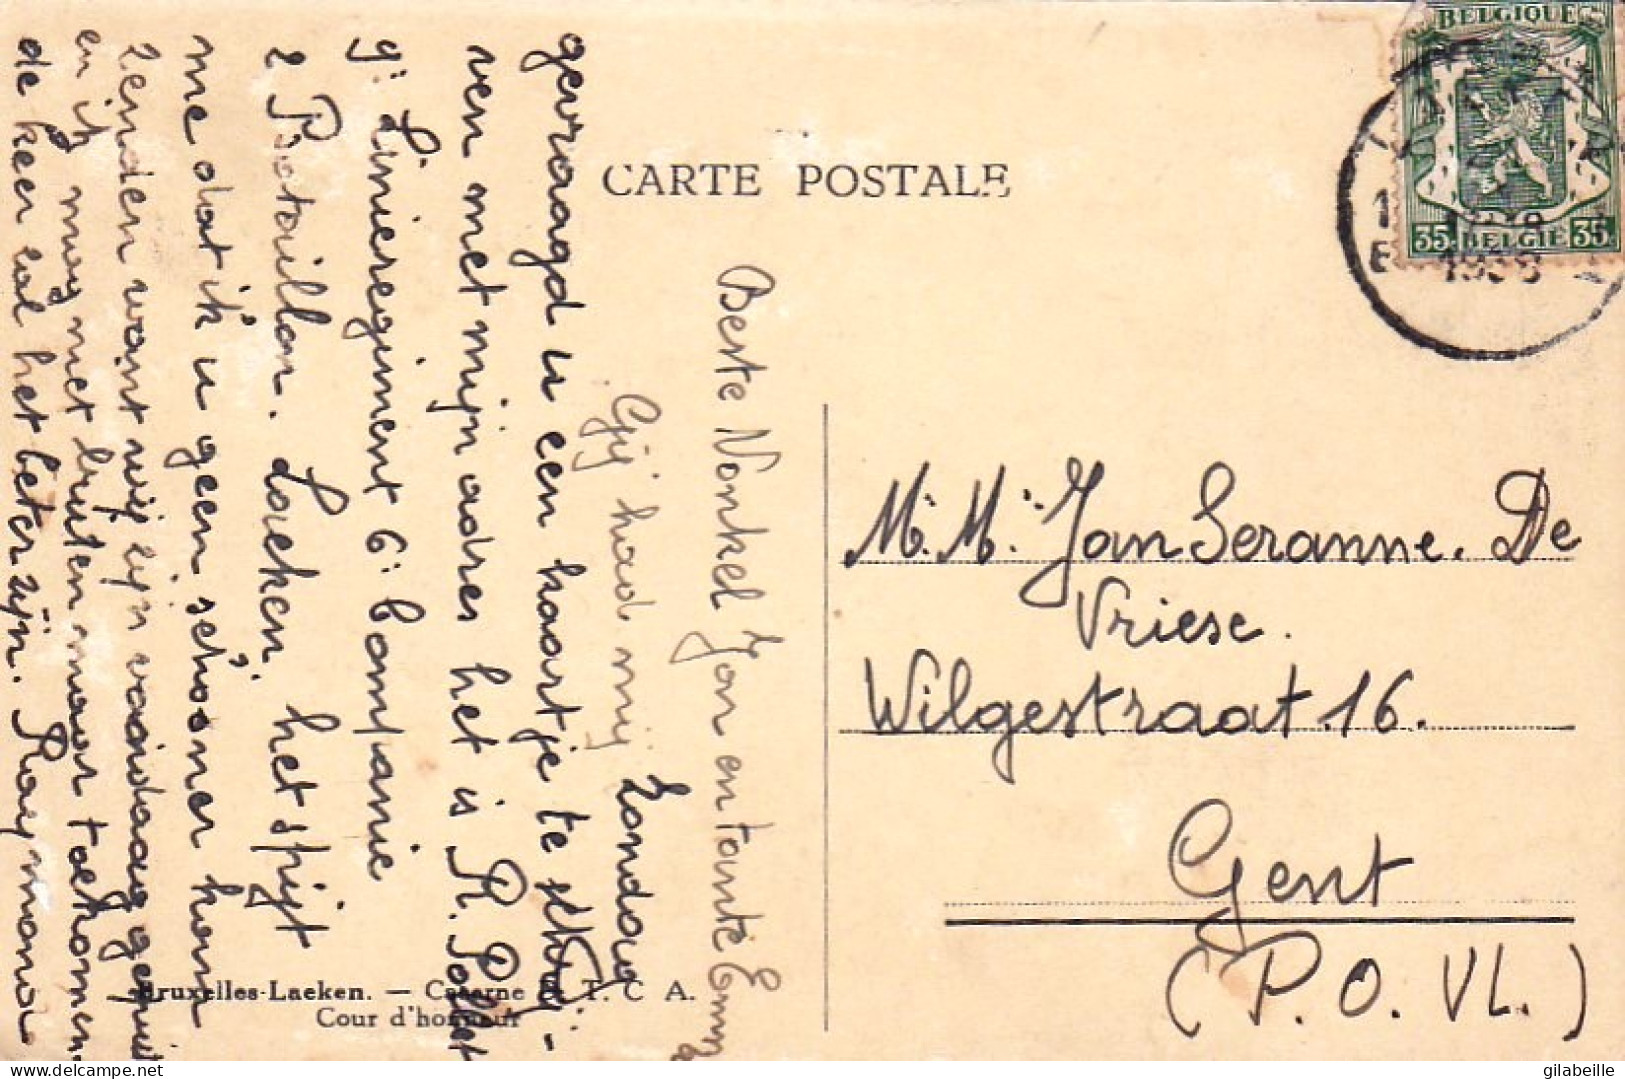 BELGIQUE
35 BELGIE 35
1938
CARTE POSTALE
Beste Nonkel Jan en tante Emma
Gij had mij Zondag
gevraagd u een kaartje te schrij-
ven met mijn adres het is R. Pollet
9e Linieregiment 6e Companie
2 Bataillon. Laeken. het spijt
me dat ik u geen schooner kan
zenden want wij zijn vandaag gepuit
en ik mag niet buiten maar toekomen
de keer zal het beter zijn. Raymond
M. M. Jan Seranne. De
Vriese.
Wilgestraat 16.
Gent
(P. O. VL.)
Bruxelles-Laeken. — Caserne T. C A.
Cour d'honneur
delcampe.net
gilabeille